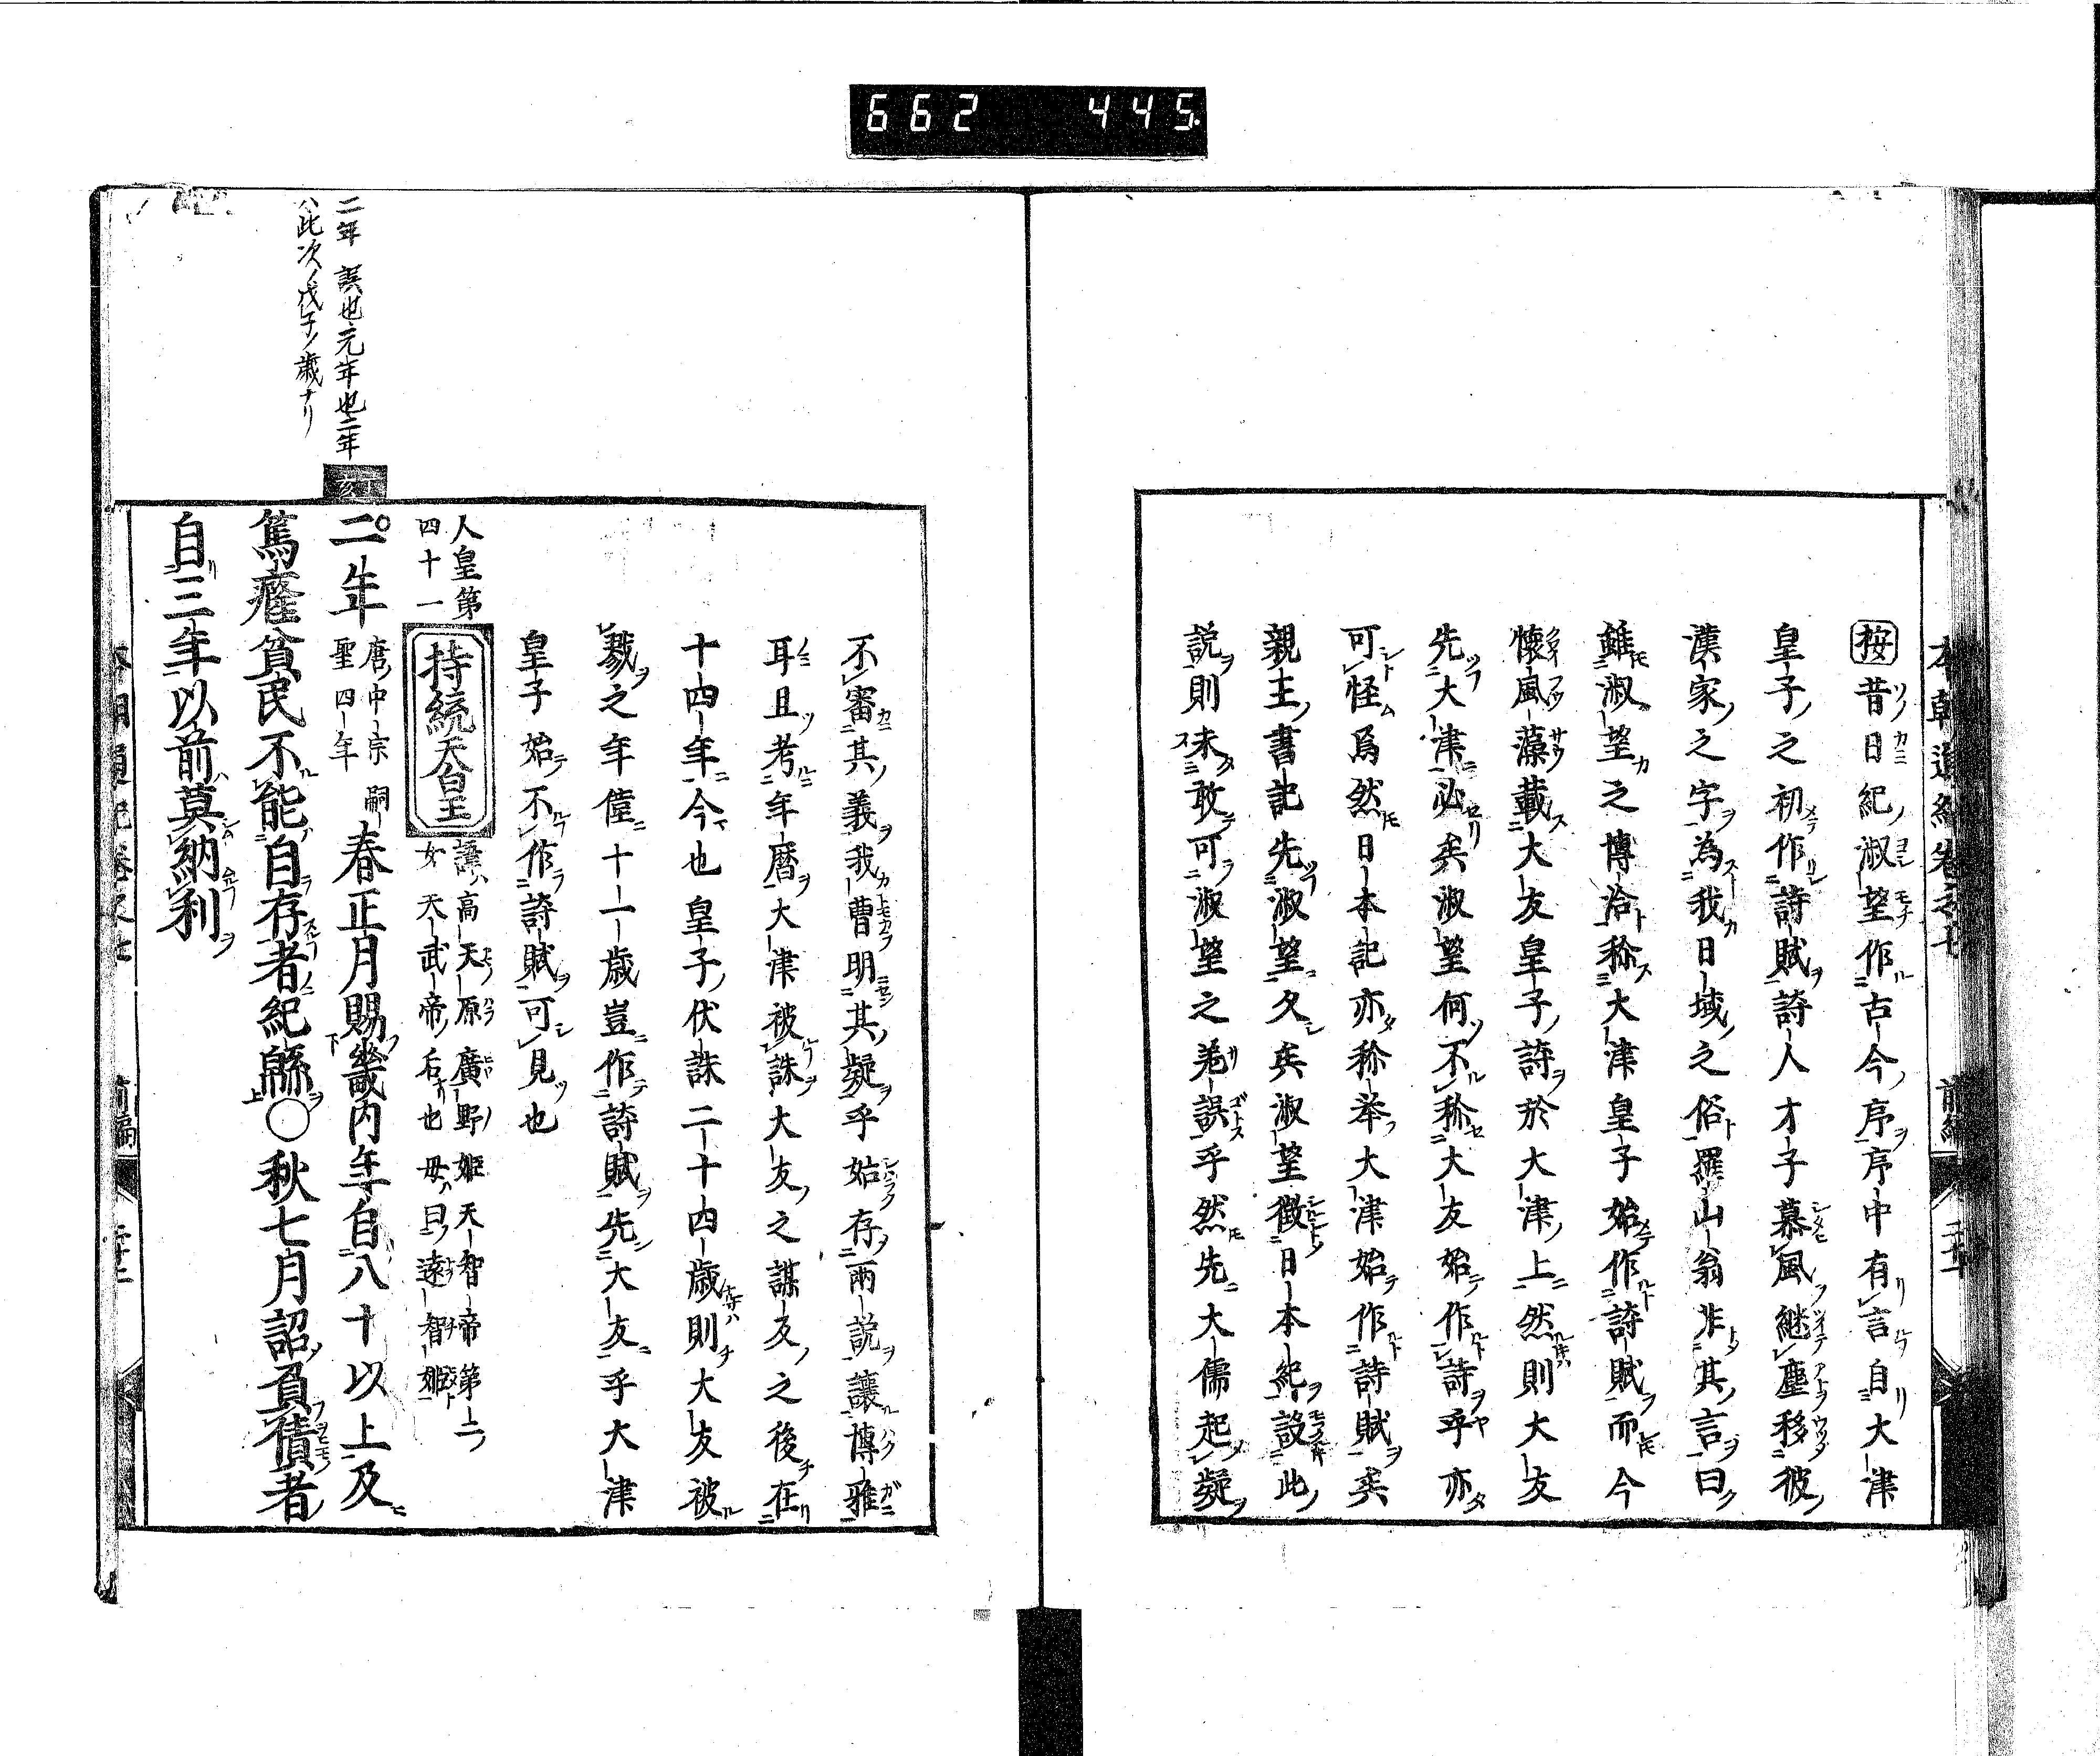 662 445.
本朝通紀卷之七 前編
按昔日紀淑望作古今序序中有言自大津
皇子之初作詩賦詩人才子慕風継塵移彼
漢家之字為我日域之俗羅山翁非其言曰
雖淑望之博洽称大津皇子始作詩賦而今
懐風藻載大友皇子詩於大津上然則大友
先大津必矣淑望何不称大友始作詩乎亦
可怪為然日本記亦称挙大津始作詩賦矣
親王書記先淑望久矣淑望徴日本紀設此
説則未敢可淑望之差誤乎然先大儒起疑
不審其義我曹明其疑乎始存兩説讓博雅
耳且考年暦大津被誅大友之謀反之後在
十四年今也皇子伏誅二十四歳則大友被
戮之年僅十一歳豈作詩賦先大友乎大津
皇子始不作詩賦可見也
人皇第四十一
持統天皇
諱高天原廣野姫天智帝第二
女天武帝后也母曰遠智姫
二年誤也元年也二年
ハ此次ノ戊子ノ歳ナリ
丁亥
二年唐中宗嗣聖四年春正月賜畿内年自八十以上及
篤癃貧民不能自存者絁緜○秋七月詔負債者
自三年以前莫納利